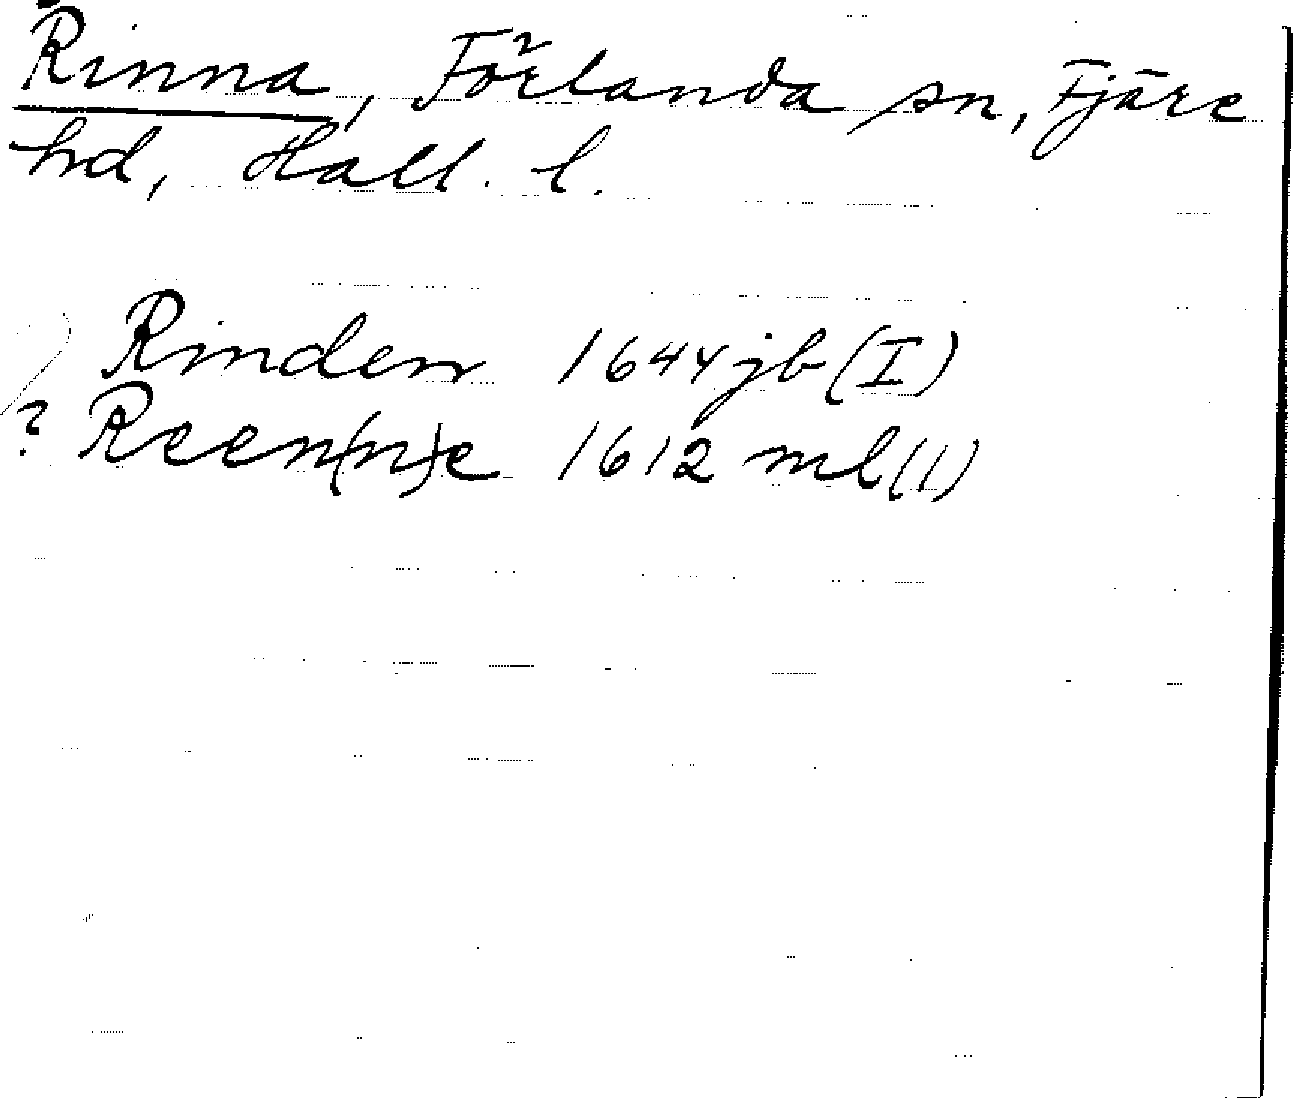 Rinna, Förlanda sn, Fjäre
hd, Hall. l.
Rinden 1644 jb (I)
? Reen(n)e 1612 ml (11)